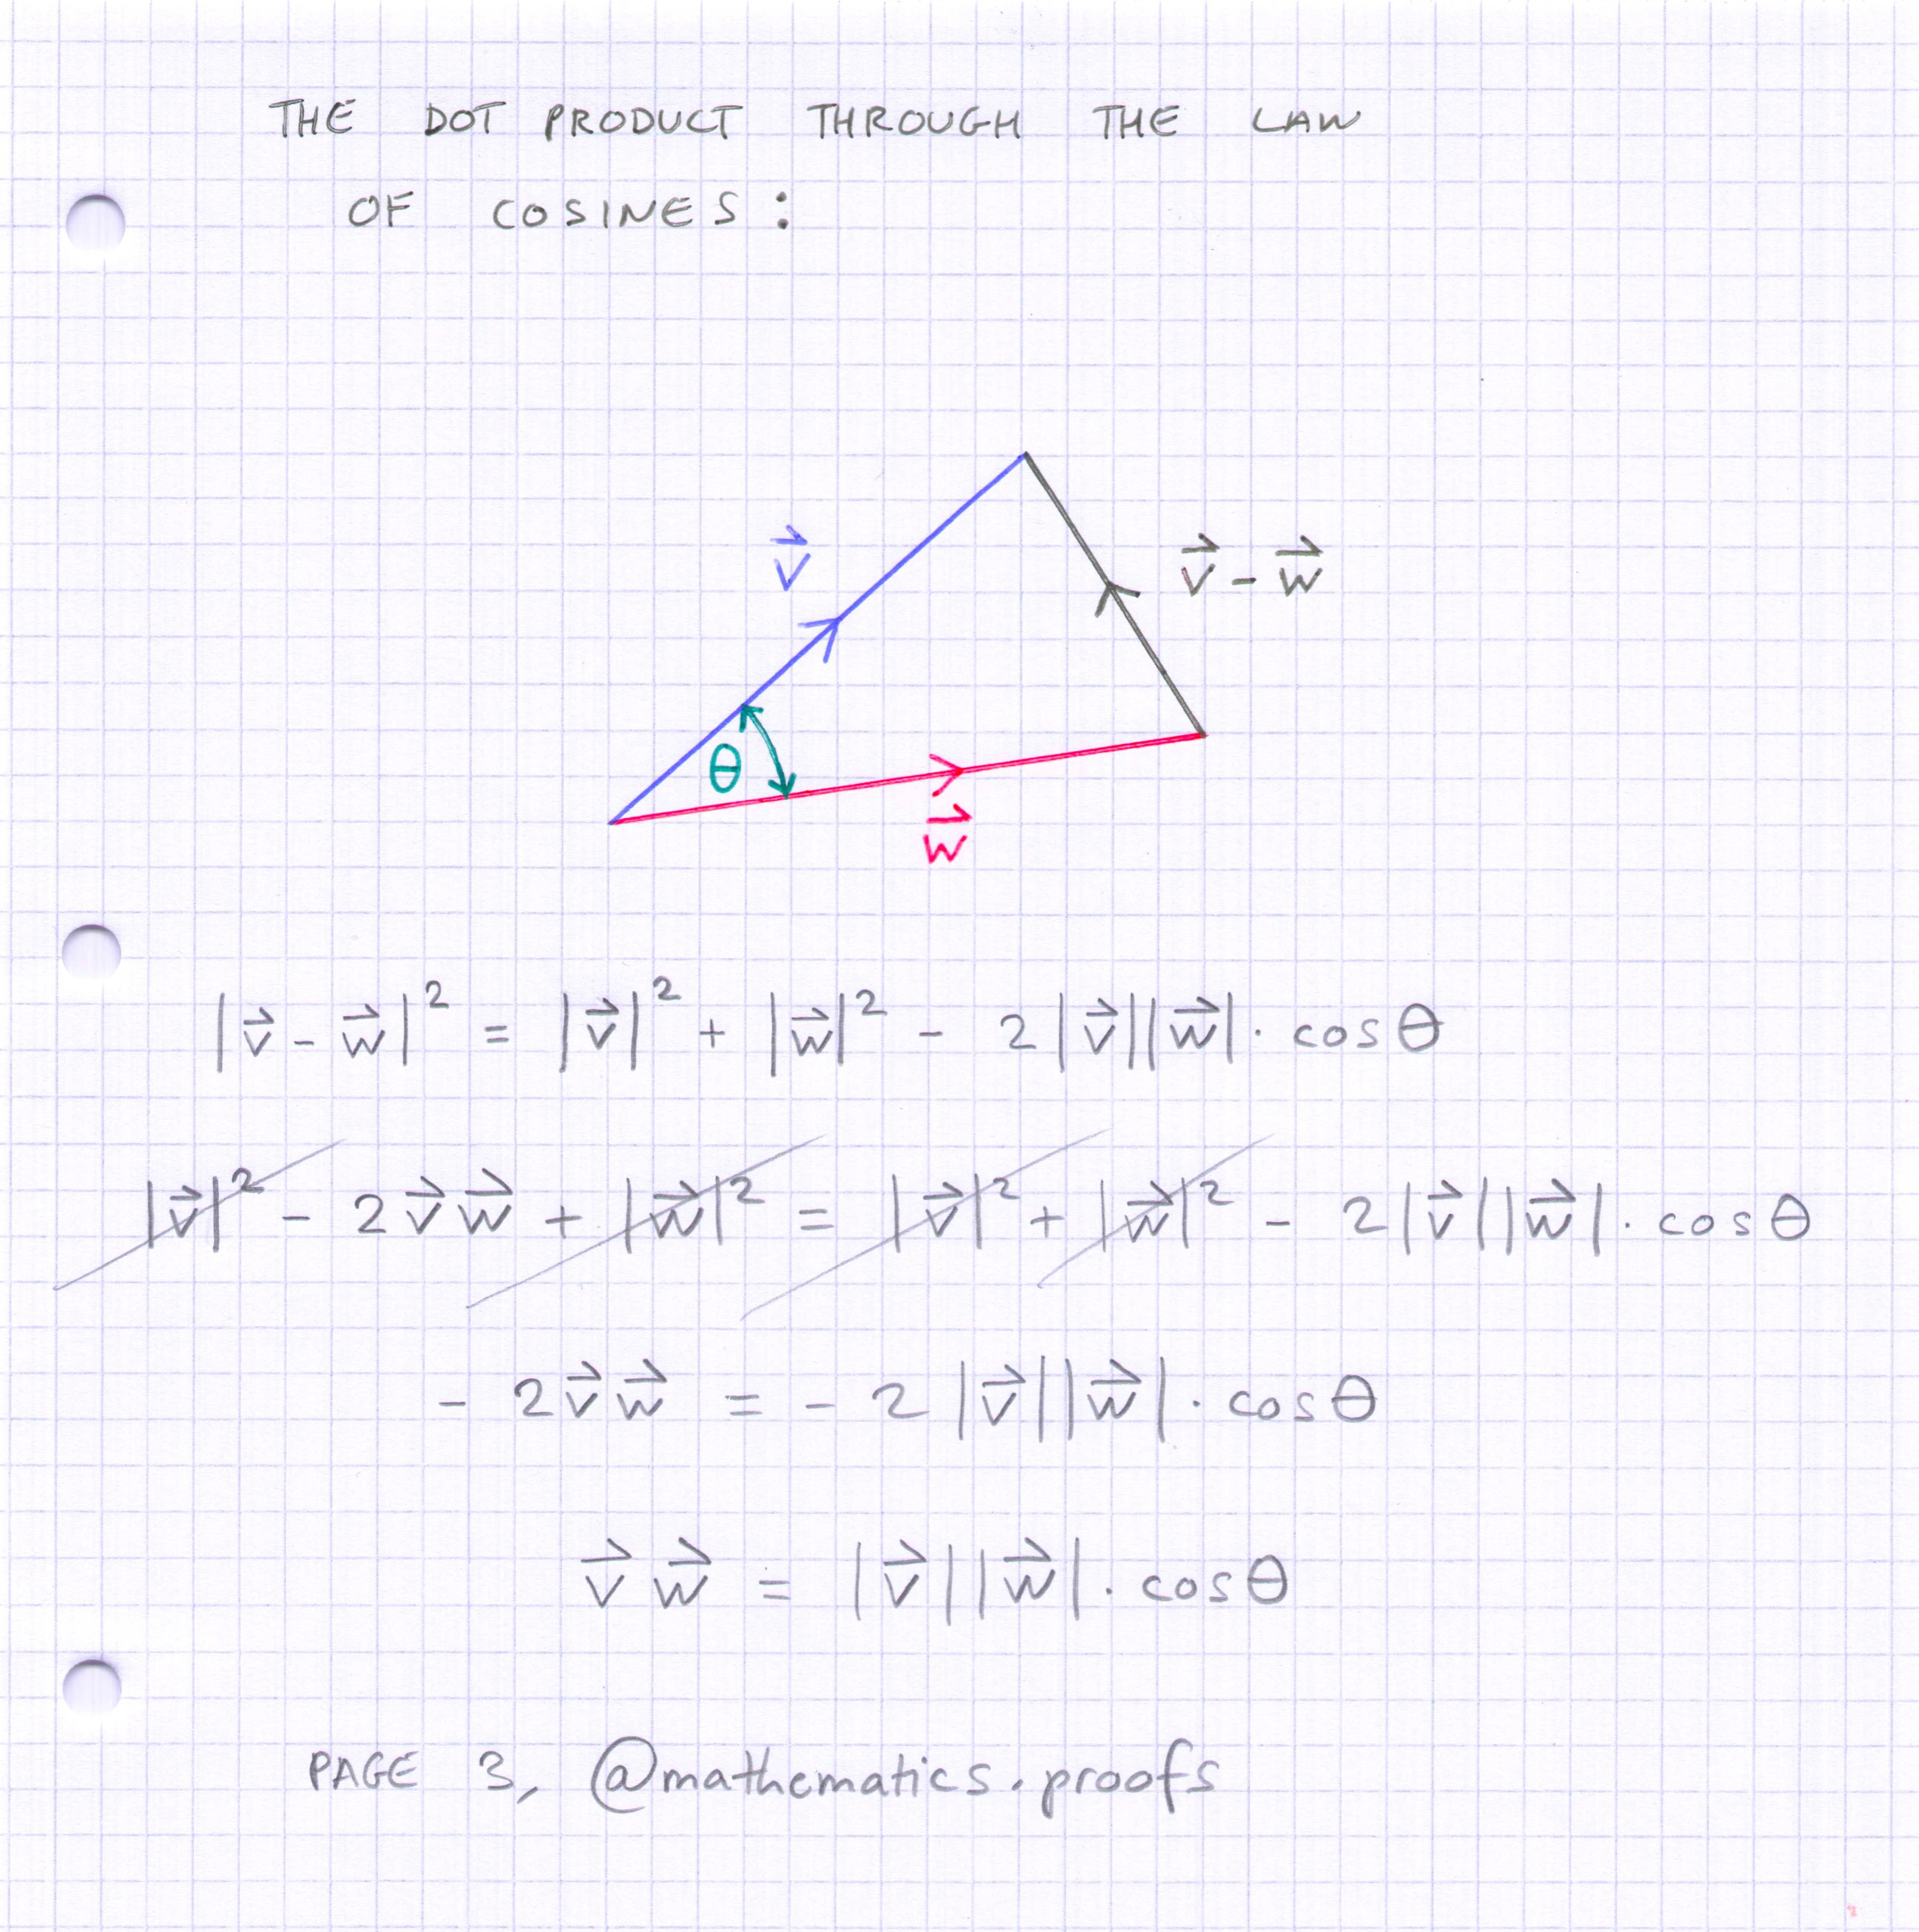 THE DOT PRODUCT THROUGH THE LAW
OF COSINES:
v⃗
v⃗ - w⃗
θ
w⃗
|v⃗ - w⃗|² = |v⃗|² + |w⃗|² - 2|v⃗||w⃗| · cos θ
|v⃗|² - 2v⃗w⃗ + |w⃗|² = |v⃗|² + |w⃗|² - 2|v⃗||w⃗| · cos θ
- 2v⃗w⃗ = - 2|v⃗||w⃗| · cos θ
v⃗w⃗ = |v⃗||w⃗| · cos θ
PAGE 3, @mathematics.proofs